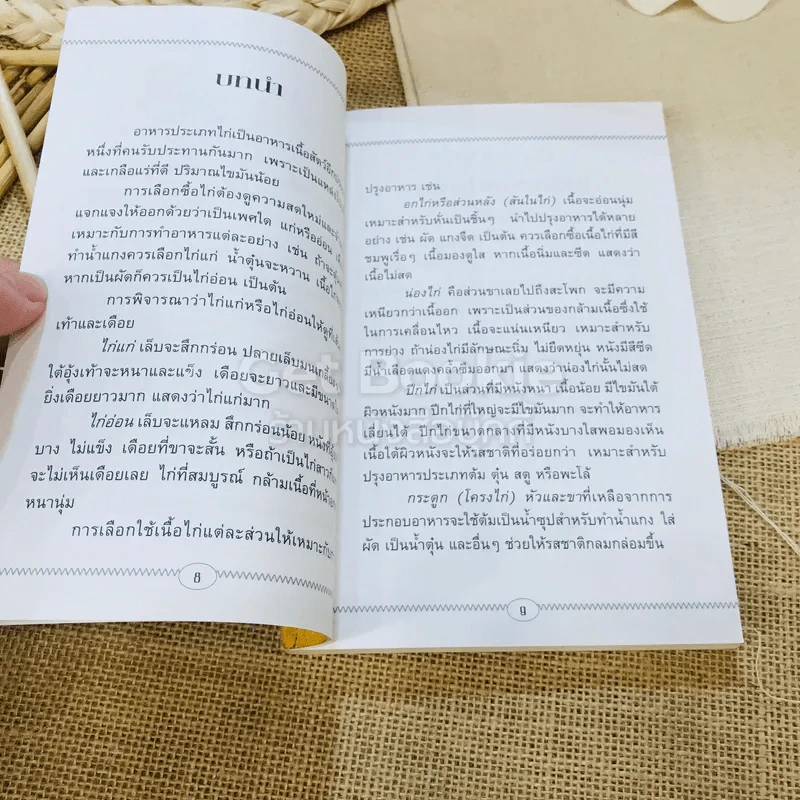 บทนำ
อาหารประเภทไก่เป็นอาหารเนื้อสัตว์อีก
หนึ่งที่คนรับประทานกันมาก เพราะเป็น
และเกลือแร่ที่ดี ปริมาณไขมันน้อย
การเลือกซื้อไก่ต้องดูความสดใหม่และ
แจกแจงให้ออกด้วยว่าเป็นเพศใด แก่หรืออ่อน
เหมาะกับการทำอาหารแต่ละอย่าง เช่น ถ้าจะ
ทำน้ำแกงควรเลือกไก่แก่ น้ำตุ๋นจะหวาน เนื้อ
หากเป็นผัดก็ควรเป็นไก่อ่อน เป็นต้น
การพิจารณาว่าไก่แก่หรือไก่อ่อนให้ดูที่
เท้าและเดือย
ไก่แก่ เล็บจะสึกกร่อน ปลายเล็บมน
ใต้อุ้งเท้าจะหนาและแข็ง เดือยจะยาวและมี
ยิ่งเดือยยาวมาก แสดงว่าไก่แก่มาก
ไก่อ่อน เล็บจะแหลม สึกกร่อนน้อย หนังที่
บาง ไม่แข็ง เดือยที่ขาจะสั้น หรือถ้าเป็นไก่สาว
จะไม่เห็นเดือยเลย ไก่ที่สมบูรณ์ กล้ามเนื้อที่
หนานุ่ม
การเลือกใช้เนื้อไก่แต่ละส่วนให้เหมาะกับ
๘
ปรุงอาหาร เช่น
อกไก่หรือส่วนหลัง (สันในไก่) เนื้อจะอ่อนนุ่ม
เหมาะสำหรับหั่นเป็นชิ้นๆ นำไปปรุงอาหารได้หลาย
อย่าง เช่น ผัด แกงจืด เป็นต้น ควรเลือกซื้อเนื้อไก่ที่มีสี
ชมพูเรื่อๆ เนื้อมองดูใส หากเนื้อนิ่มและซีด แสดงว่า
เนื้อไม่สด
น่องไก่ คือส่วนขาเลยไปถึงสะโพก จะมีความ
เหนียวกว่าเนื้ออก เพราะเป็นส่วนของกล้ามเนื้อซึ่งใช้
ในการเคลื่อนไหว เนื้อจะแน่นเหนียว เหมาะสำหรับ
การย่าง ถ้าน่องไก่มีลักษณะนิ่ม ไม่ยืดหยุ่น หนังมีสีซีด
มีน้ำเลือดแดงคล้ำซึมออกมา แสดงว่าน่องไก่นั้นไม่สด
ปีกไก่ เป็นส่วนที่มีหนังหนา เนื้อน้อย มีไขมันใต้
ผิวหนังมาก ปีกไก่ที่ใหญ่จะมีไขมันมาก จะทำให้อาหาร
เลี่ยนได้ ปีกไก่ขนาดกลางที่มีหนังบางใสพอมองเห็น
เนื้อใต้ผิวหนังจะให้รสชาติที่อร่อยกว่า เหมาะสำหรับ
ปรุงอาหารประเภทต้ม ตุ๋น สตู หรือพะโล้
กระดูก (โครงไก่) หัวและขาที่เหลือจากการ
ประกอบอาหารจะใช้ต้มเป็นน้ำซุปสำหรับทำน้ำแกง ใส่
ผัด เป็นน้ำตุ๋น และอื่นๆ ช่วยให้รสชาติกลมกล่อมขึ้น
๙
Get Bookie
ร้านหนังสือมือสอง